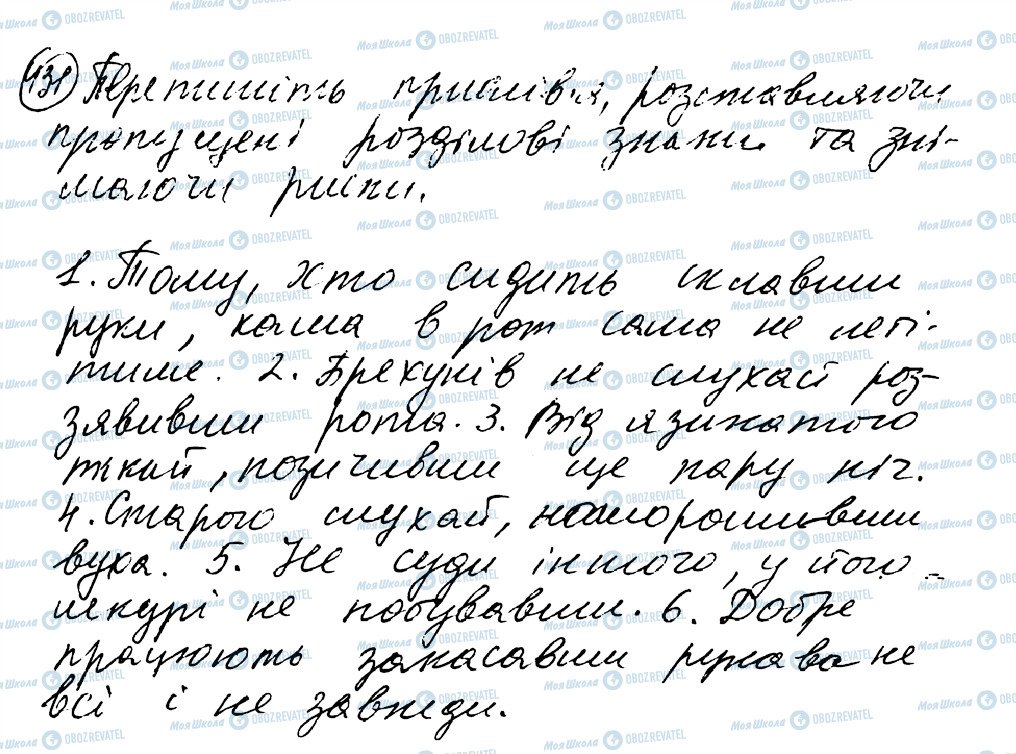 431 Перепишіть прислів'я, розставляючи
пропущені розділові знаки та зні-
маючи риски.
1. Тому, хто сидить склавши
руки, каша в рот сама не леті-
тиме. 2. Брехунів не слухай роз-
зявивши рота. 3. Від язикатого
тікай, позичивши ще пару ніг.
4. Старого слухай, нашорошивши
вуха. 5. Не суди іншого, у його
шкурі не побувавши. 6. Добре
працюють закасавши рукава не
всі і не завжди.